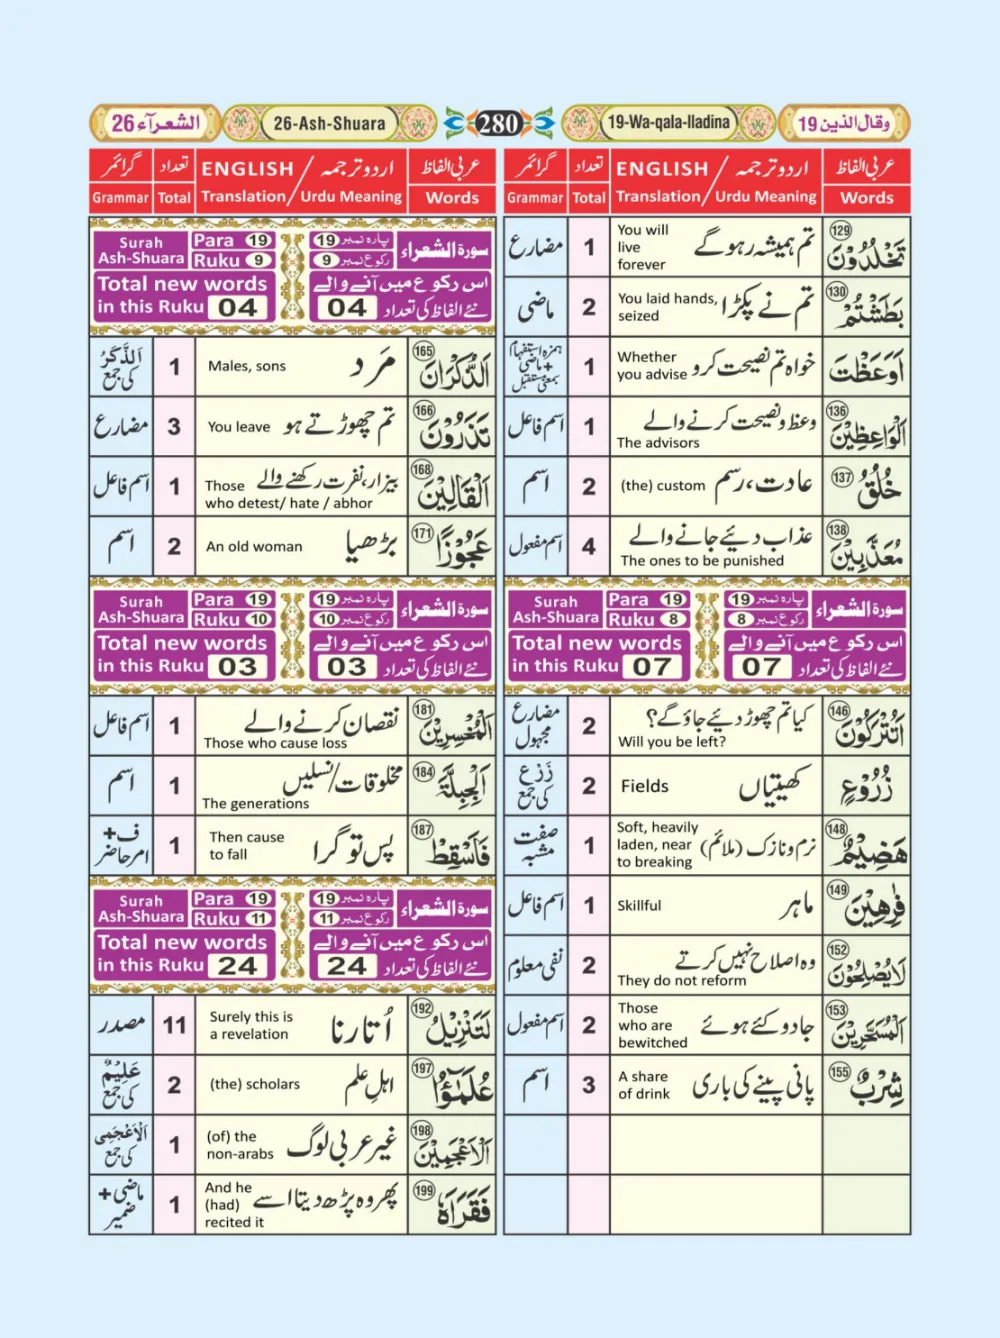 وقال الذين 19
19-Wa-qala-lladina
280
26-Ash-Shuara
الشعرآء 26
عربی الفاظ
اردو ترجمہ / ENGLISH
تعداد
گرائمر
Words
Translation / Urdu Meaning
Total
Grammar
129 تَخْلُدُوْنَ
تم ہمیشہ رہو گے
You will
live
forever
1
مضارع
130 بَطَشْتُمْ
تم نے پکڑا
You laid hands,
seized
2
ماضی
اَوَعَظْتَ
خواہ تم نصیحت کرو
Whether
you advise
1
ہمزہ استفہام
+ ماضی
بمعنی مستقبل
136 الْوَاعِظِيْنَ
وعظ و نصیحت کرنے والے
The advisors
1
اسم فاعل
137 خُلُقُ
عادت، رسم
(the) custom
2
اسم
138 مُعَذَّبِيْنَ
عذاب دئیے جانے والے
The ones to be punished
4
اسم مفعول
سورة الشعراء
پارہ نمبر 19
رکوع نمبر 8
Para 19
Ruku 8
Surah
Ash-Shuara
اس رکوع میں آنے والے
نئے الفاظ کی تعداد 07
Total new words
in this Ruku 07
146 اَتُتْرَكُوْنَ
کیا تم چھوڑ دئیے جاؤ گے؟
Will you be left?
2
مضارع
مجہول
زُرُوْعٍ
کھیتیاں
Fields
2
زَرْع
کی جمع
148 هَضِيْمٌ
نرم و نازک (ملائم)
Soft, heavily
laden, near
to breaking
1
صفت
مشبہ
149 فٰرِهِيْنَ
ماہر
Skillful
1
اسم فاعل
152 لَا يُصْلِحُوْنَ
وہ اصلاح نہیں کرتے
They do not reform
2
نفی معلوم
153 الْمُسَحَّرِيْنَ
جادو کئے ہوئے
Those
who are
bewitched
2
اسم مفعول
155 شِرْبٌ
پانی پینے کی باری
A share
of drink
3
اسم
عربی الفاظ
اردو ترجمہ / ENGLISH
تعداد
گرائمر
Words
Translation / Urdu Meaning
Total
Grammar
سورة الشعراء
پارہ نمبر 19
رکوع نمبر 9
Para 19
Ruku 9
Surah
Ash-Shuara
اس رکوع میں آنے والے
نئے الفاظ کی تعداد 04
Total new words
in this Ruku 04
165 الذُّكْرَانَ
مَرد
Males, sons
1
اَلذَّكَرُ
کی جمع
166 تَذَرُوْنَ
تم چھوڑتے ہو
You leave
3
مضارع
168 الْقَالِيْنَ
بیزار، نفرت رکھنے والے
Those
who detest/ hate / abhor
1
اسم فاعل
171 عَجُوْزًا
بڑھیا
An old woman
2
اسم
سورة الشعراء
پارہ نمبر 19
رکوع نمبر 10
Para 19
Ruku 10
Surah
Ash-Shuara
اس رکوع میں آنے والے
نئے الفاظ کی تعداد 03
Total new words
in this Ruku 03
181 الْمُخْسِرِيْنَ
نقصان کرنے والے
Those who cause loss
1
اسم فاعل
184 الْجِبِلَّةَ
مخلوقات/نسلیں
The generations
1
اسم
187 فَاَسْقِطْ
پس تو گرا
Then cause
to fall
1
ف+
امر حاضر
سورة الشعراء
پارہ نمبر 19
رکوع نمبر 11
Para 19
Ruku 11
Surah
Ash-Shuara
اس رکوع میں آنے والے
نئے الفاظ کی تعداد 24
Total new words
in this Ruku 24
192 لَتَنْزِيْلُ
اُتارنا
Surely this is
a revelation
11
مصدر
197 عُلَمٰٓؤُا
اہلِ علم
(the) scholars
2
عَلِيْمٌ
کی جمع
198 الْاَعْجَمِيْنَ
غیر عربی لوگ
(of) the
non-arabs
1
اَلْاَعْجَمِی
کی جمع
199 فَقَرَاَهٗ
پھر وہ پڑھ دیتا اسے
And he
(had)
recited it
1
ماضی +
ضمیر